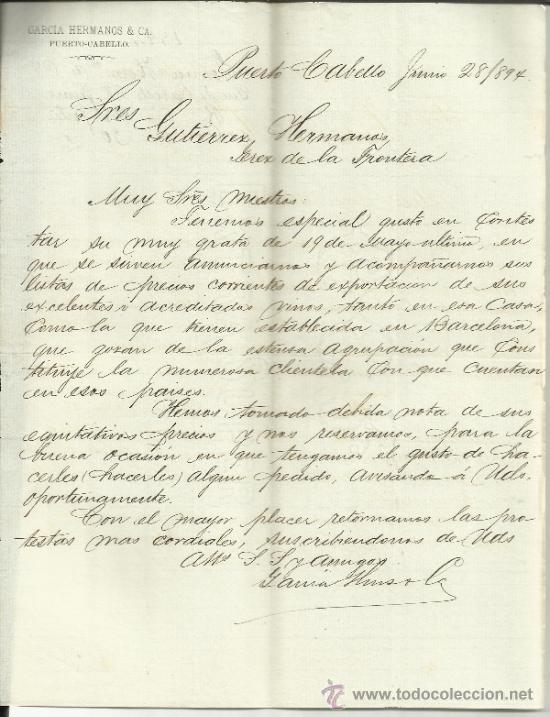 GARCÍA HERMANOS & CA.
PUERTO-CABELLO.
Puerto Cabello Junio 28/894.
Sres
Gutierrez Hermanos
Jerez de la Frontera
Muy Sres nuestros:
Tenemos especial gusto en contes
tar su muy grata de 19 de Mayo último, en
que se sirven anunciarnos y acompañarnos sus
listas de precios corrientes de exportacion de sus
excelentes i acreditados vinos, tanto en esa Casa,
como la que tienen establecida en Barcelona,
que gozan de la estensa agrupación que Cons
tituye la numerosa clientela con que cuentan
en esos paises.
Hemos tomado debida nota de sus
equitativos precios y nos reservamos, para la
buena ocasión en que tengamos el gusto de ha-
cerles (hacerles) algun pedido, avisando á Uds.
oportunamente.
Con el mayor placer retornamos las pro-
testas mas cordiales, suscribiendonos de Uds
Atts. S. S y amigos
Garcia Hnos & Ca
www.todocoleccion.net